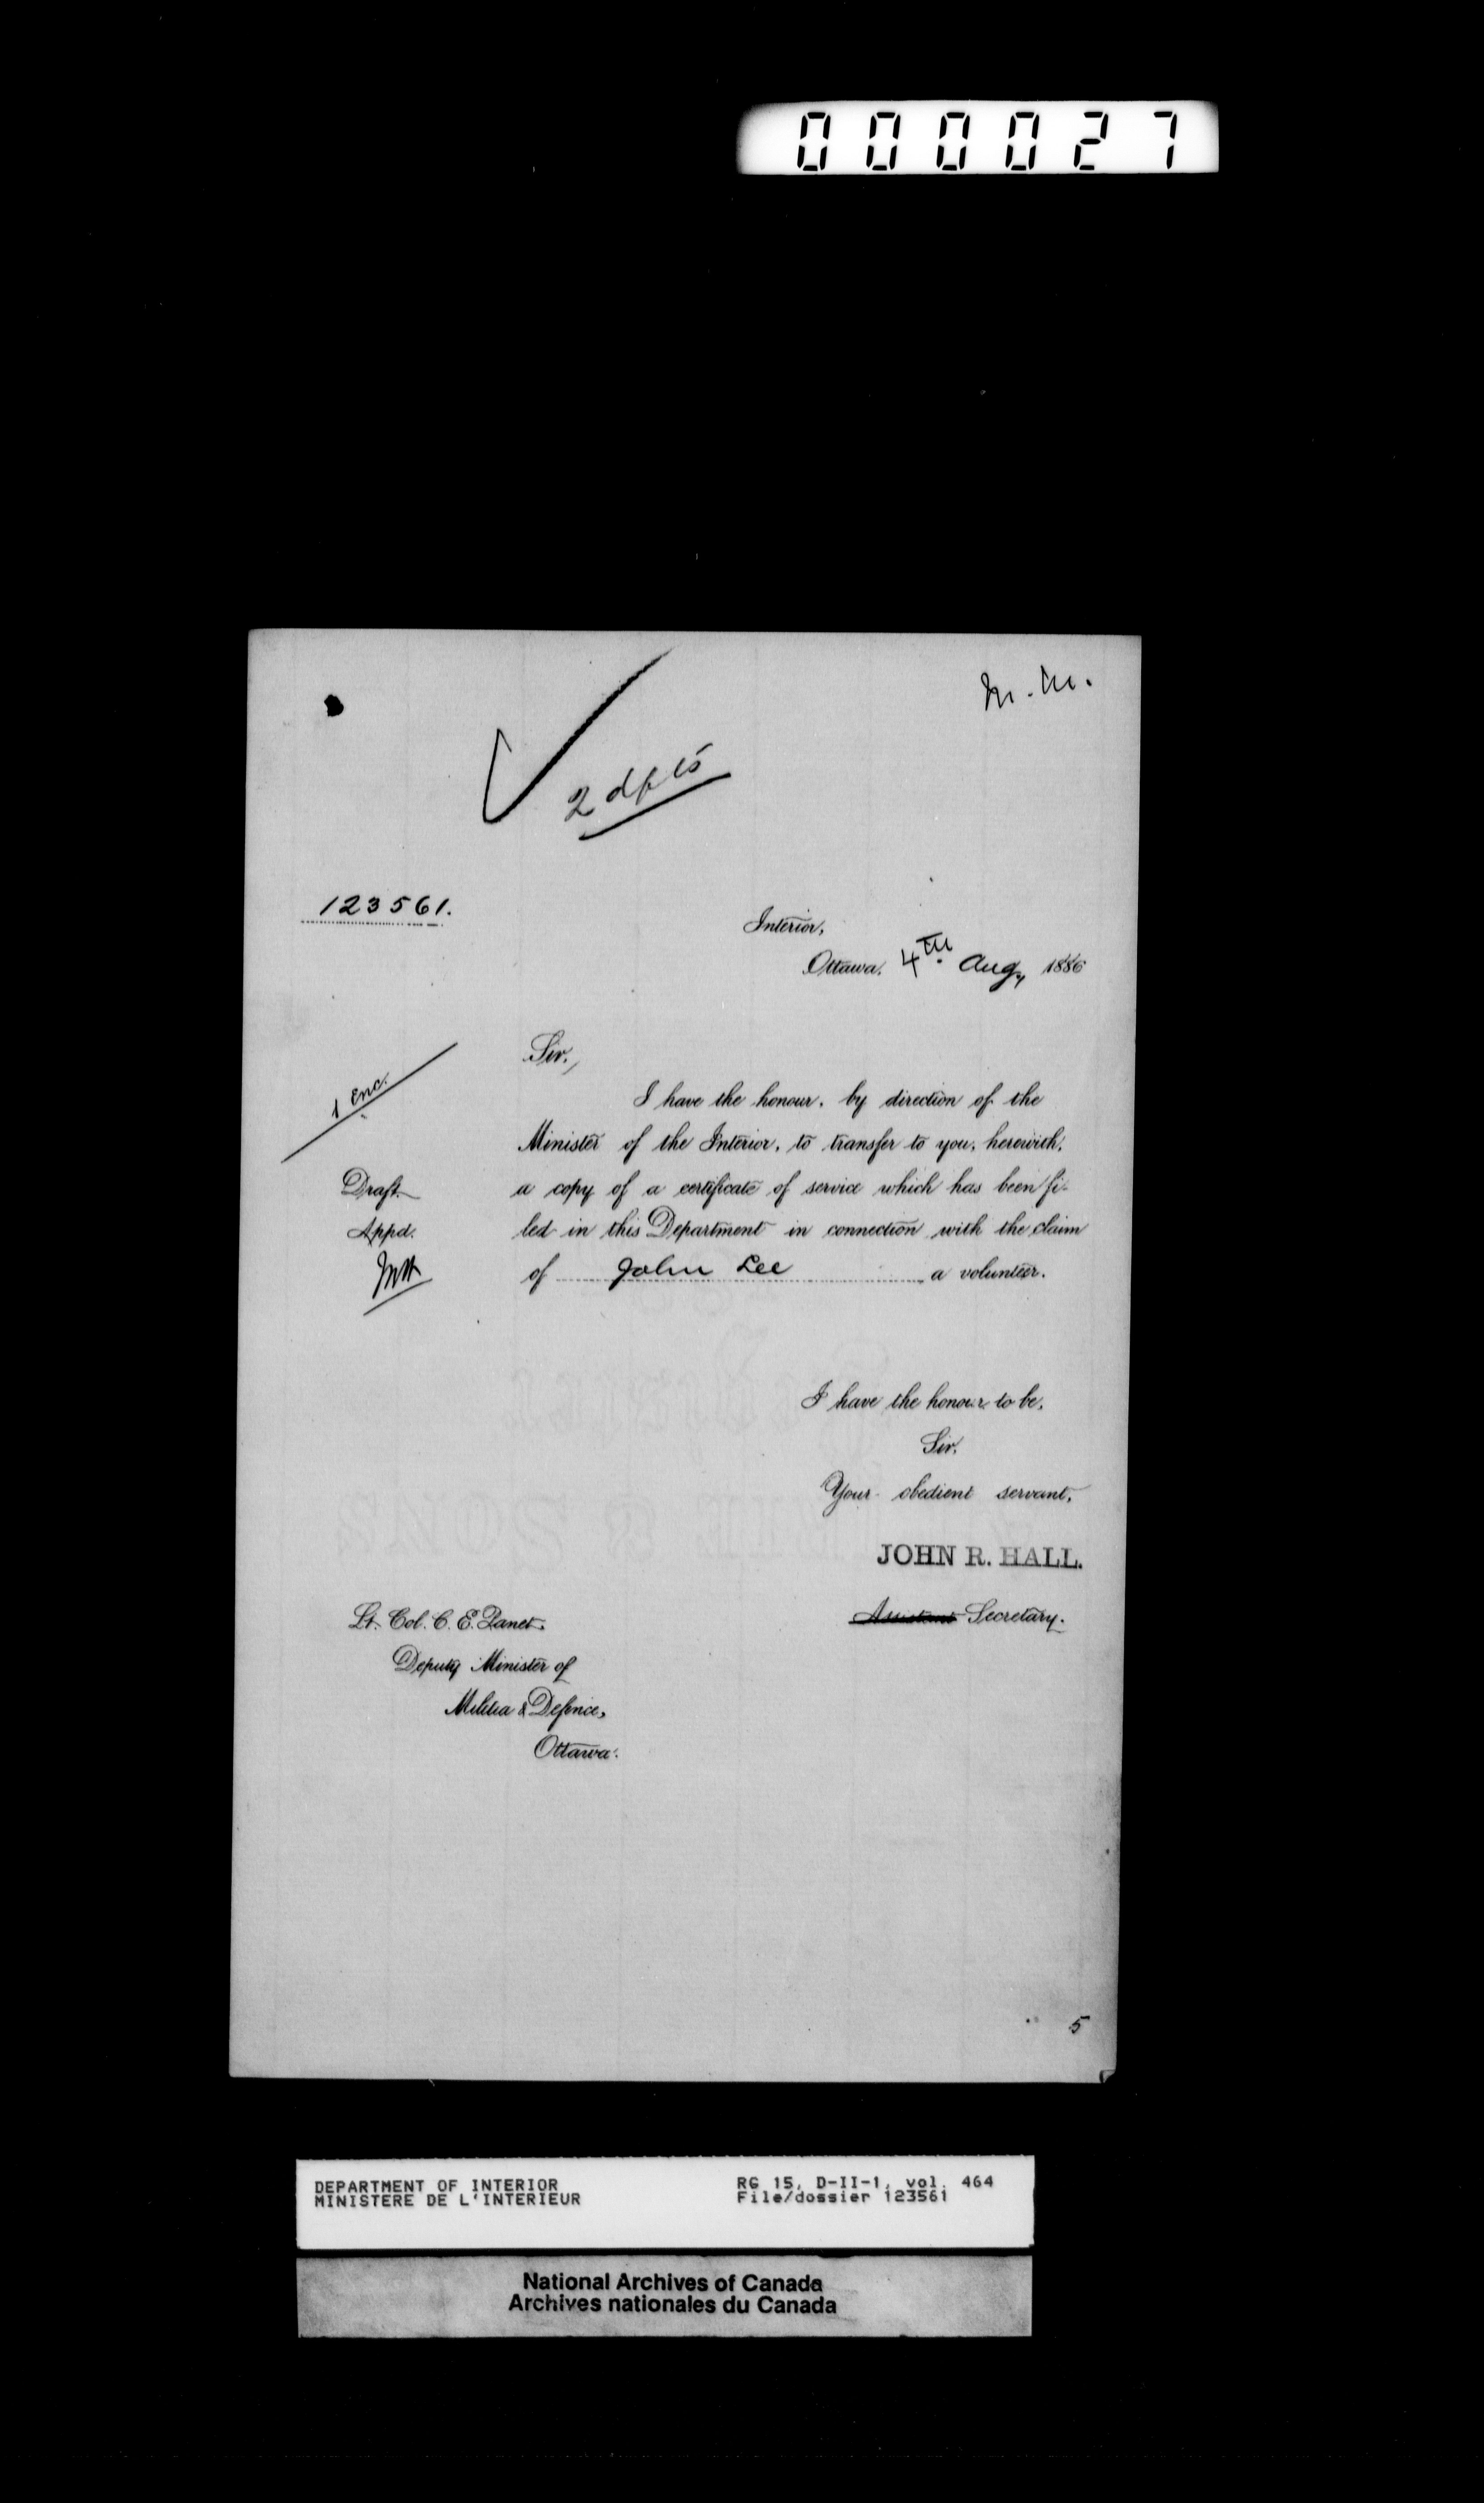 000027
M.M.
2 dpts
123561.
Interior,
Ottawa, 4th Aug, 1886
Sir,
1 Enc.
I have the honour, by direction of the
Minister of the Interior, to transfer to you, herewith,
Draft.
a copy of a certificate of service which has been fi-
Appd.
led in this Department in connection with the claim
of John Lee a volunteer.
I have the honour to be,
Sir,
Your obedient servant,
JOHN R. HALL.
Assistant Secretary.
Lt. Col. C. E. Panet,
Deputy Minister of
Militia & Defence,
Ottawa.
5
DEPARTMENT OF INTERIOR
MINISTERE DE L'INTERIEUR
RG 15, D-II-1, vol. 464
File/dossier 123561
National Archives of Canada
Archives nationales du Canada